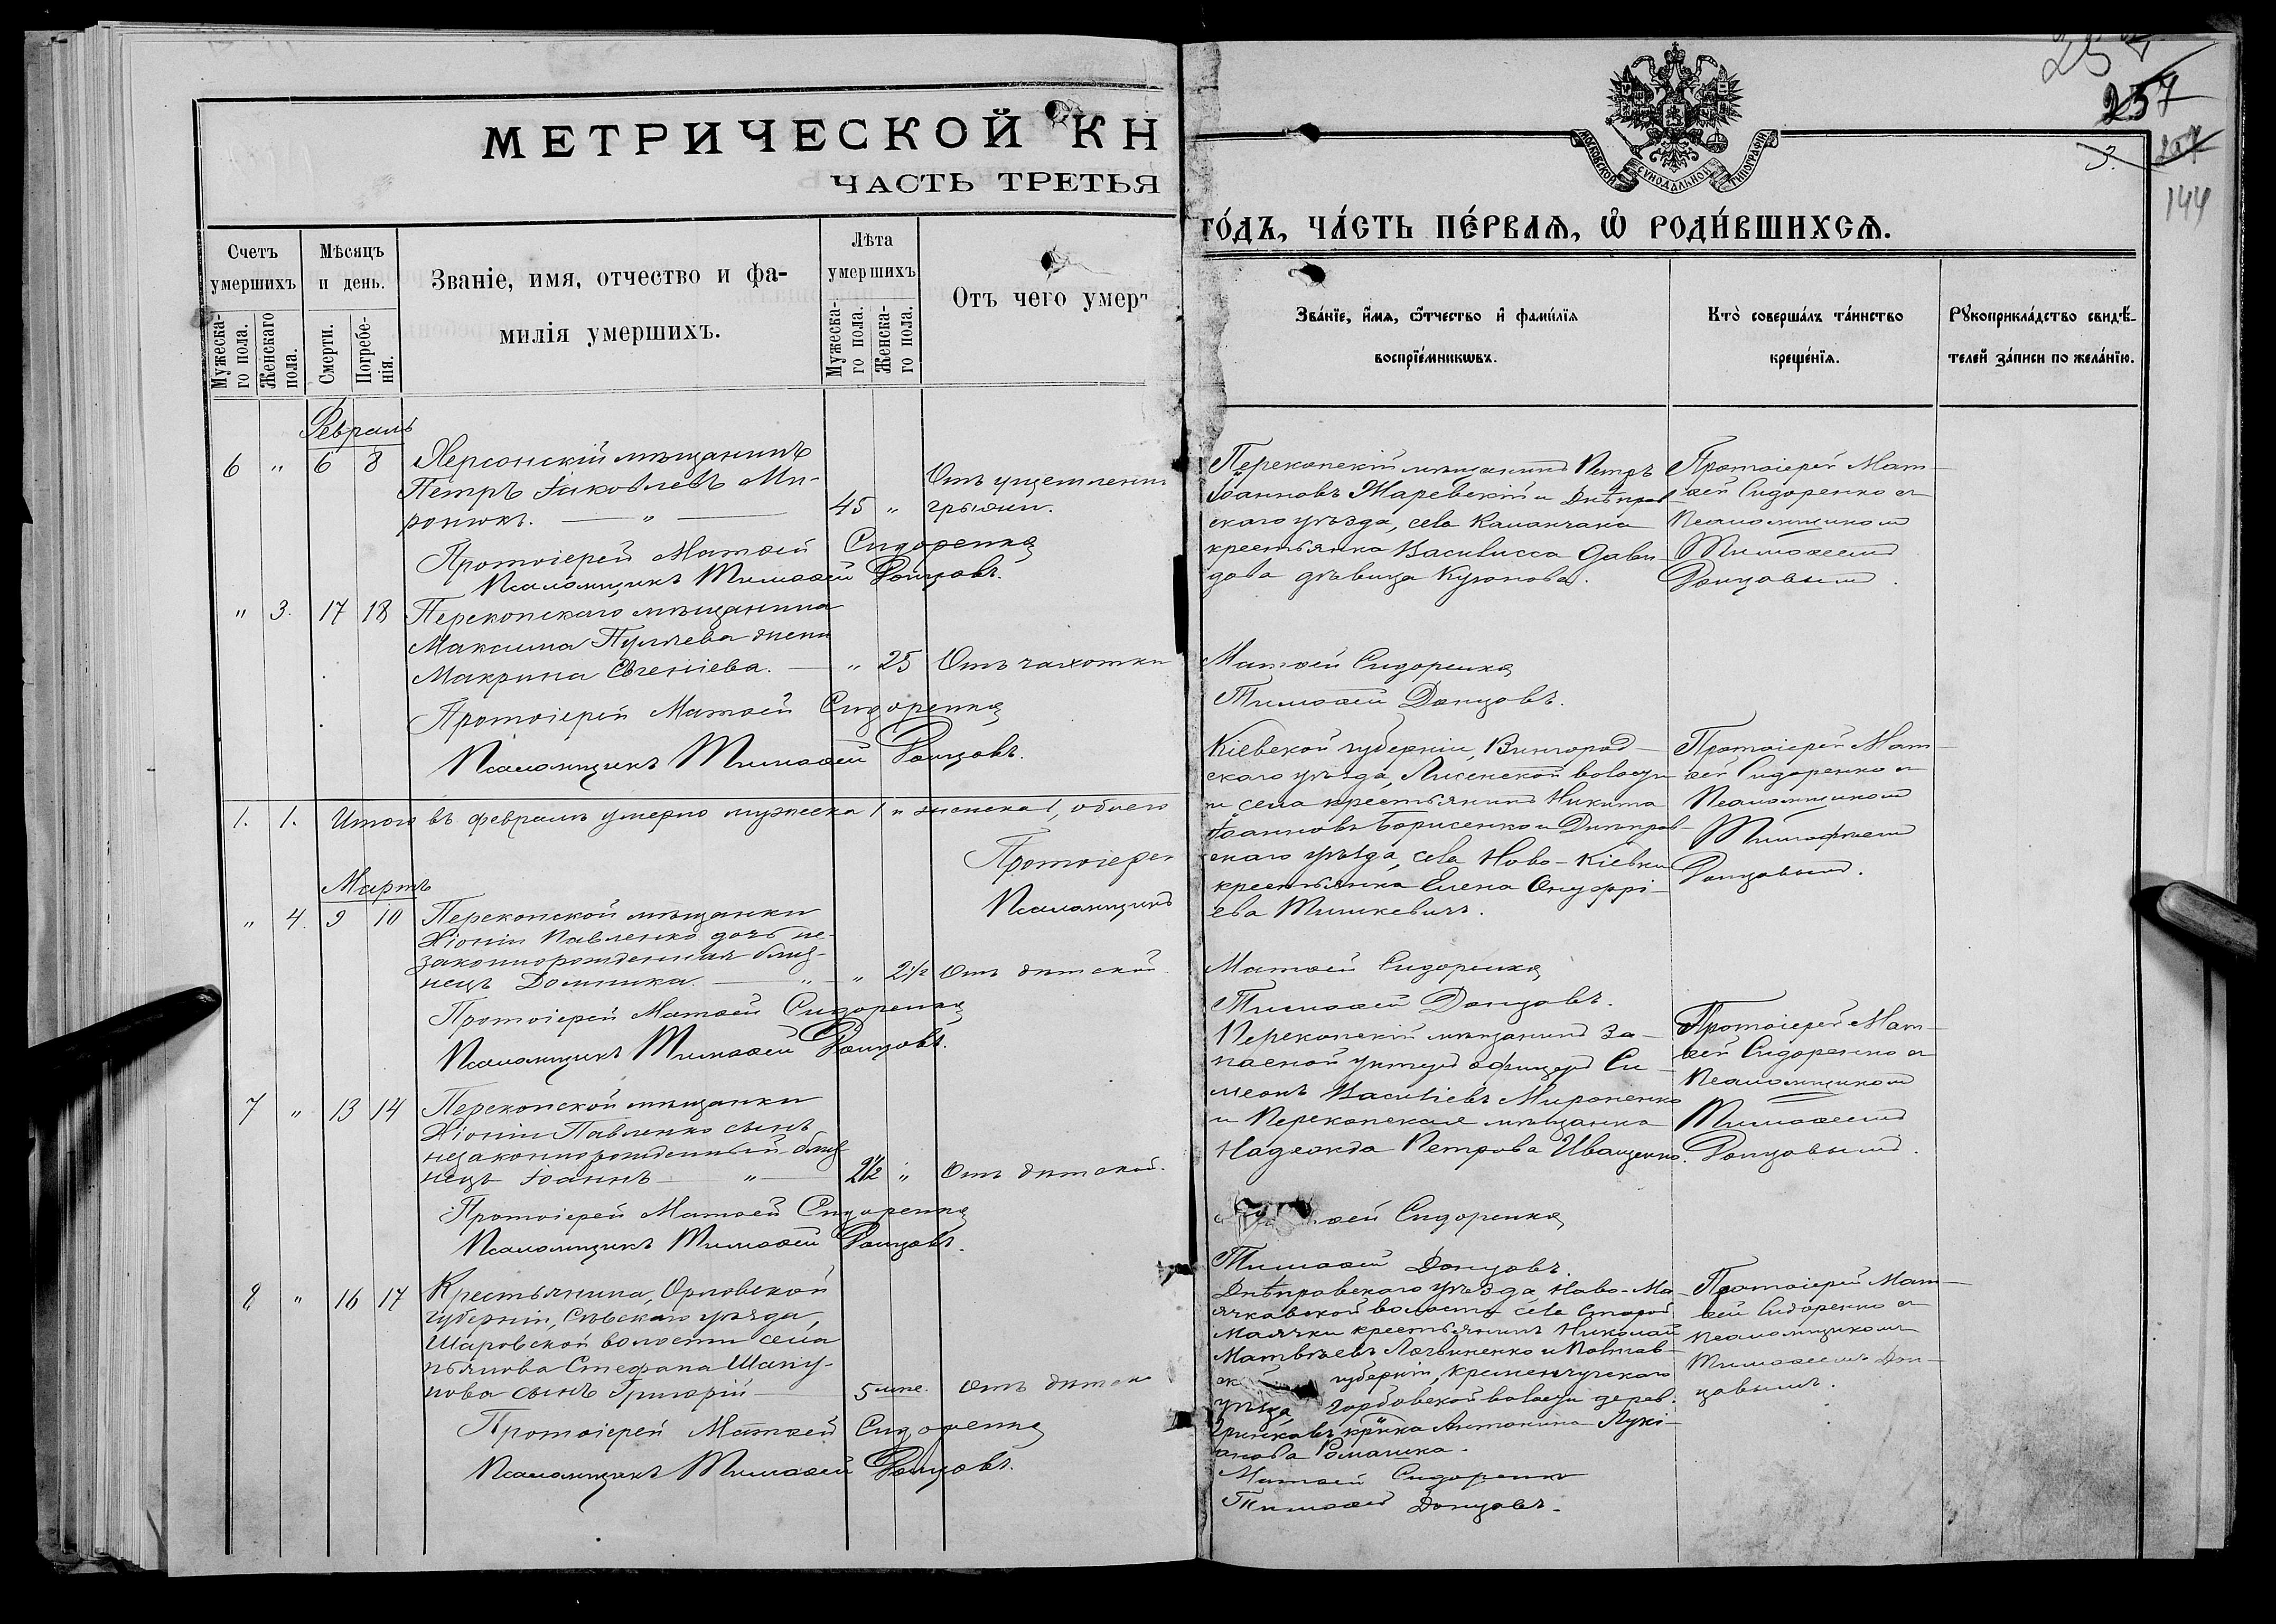 МЕТРИЧЕСКОЙ КН
ЧАСТЬ ТРЕТЬЯ
Счетъ умершихъ
Мужеска-го пола.
Женскаго пола.
Мѣсяцъ и день.
Смерти.
Погребе-нія.
Званіе, имя, отчество и фа-
милія умершихъ.
Лѣта умершихъ
Мужеска-го пола.
Женска-го пола.
Отъ чего умер
Февраль
6 " 6 8 Херсонскій мѣщанинъ
Петръ Іаковлевъ Ми-
ронюкъ. — " — 45 " Отъ ущемленія
грыжи.
Протоіерей Матѳей Сидоренко
Псаломщикъ Тимоѳей Донцовъ.
" 3. 17 18 Перекопскаго мѣщанина
Максима Пуляева жена
Макрина Евгеніева. — " 25 Отъ чахотки
Протоіерей Матѳей Сидоренко
Псаломщикъ Тимоѳей Донцовъ.
1. 1. Итого въ февралѣ умерло мужеска 1 и женска 1, обоего
Протоіерей
Псаломщикъ
Мартъ
" 4. 9 10 Перекопской мѣщанки
Хіоніи Павленко дочь не-
законнорожденная близ-
нецъ Домника. — " — " 2 1/2 Отъ дѣтской.
Протоіерей Матѳей Сидоренко
Псаломщикъ Тимоѳей Донцовъ.
7 " 13 14 Перекопской мѣщанки
Хіоніи Павленко сынъ
незаконнорожденный близ
нецъ Іоаннъ — " — 2 1/2 " Отъ дѣтской.
Протоіерей Матѳей Сидоренко
Псаломщикъ Тимоѳей Донцовъ.
8 " 16 17 Крестьянина, Орловской
губерніи, Сѣвскаго уѣзда,
Шаровской волости села
Стефана Шапу-
нова сынъ Григорій — 5 мѣс. Отъ дѣтско
Протоіерей Матѳей Сидоренко
Псаломщикъ Тимоѳей Донцовъ.
257
257
144
МОСКОВСКОЙ СѴНОДАЛЬНОЙ ТИПОГРАФІИ
го́дъ, ча́сть пе́рвая, ѡ҆ роди́вшихся.
Зва́нїе, и҆́мя, ѻ҆́тчество и҆ фами́лїя
воспрїе́мникѡвъ.
Кто̀ соверша́лъ та́инство
креще́нїя.
Рꙋкоприкла́дство свидѣ́-
телей за́писи по жела́нїю.
Перекопскій мѣщанинъ Петръ
Іоанновъ Жаревскій и Днѣпров-
скаго уѣзда, села Каланчака
крестьянка Василисса Дави-
дова дѣвица Кузюкова.
Протоіерей Мат-
ѳей Сидоренко съ
Псаломщикомъ
Тимоѳеемъ
Донцовымъ.
Матѳей Сидоренко
Тимоѳей Донцовъ.
Кіевской губерніи, Звингород-
скаго уѣзда, Лисенской волости
и села крестьянинъ Никита
Іоанновъ Борисенко и Днѣпров-
скаго уѣзда, села Ново-Кіевки
крестьянка Елена Онуфрі-
ева Тишкевичъ.
Протоіерей Мат-
ѳей Сидоренко съ
Псаломщикомъ
Тимофѣемъ
Донцовымъ.
Матѳей Сидоренко
Тимоѳей Донцовъ.
Перекопскій мѣщанинъ за-
пасной унтеръ офицеръ Си-
меонъ Василіевъ Мироненко
и Перекопская мѣщанка
Надежда Петрова Иващенко.
Протоіерей Мат-
ѳей Сидоренко съ
Псаломщикомъ
Тимоѳеемъ
Донцовымъ.
ѳей Сидоренко
Тимоѳей Донцовъ.
Днѣпровскаго уѣзда Ново-Ма-
ячковской волости села Старой
Маячки крестьянинъ Николай
Матвѣевъ Логвиненко и Полтав-
ск губерніи, Кременчугскаго
уѣзда волости дерев.
кр̃нка Антонина Лукі-
анова Романика.
Протоіерей Мат-
ѳей Сидоренко съ
псаломщикомъ
Тимоѳеемъ Дон-
цовымъ.
Матѳей Сидоренко
Тимоѳей Донцовъ.